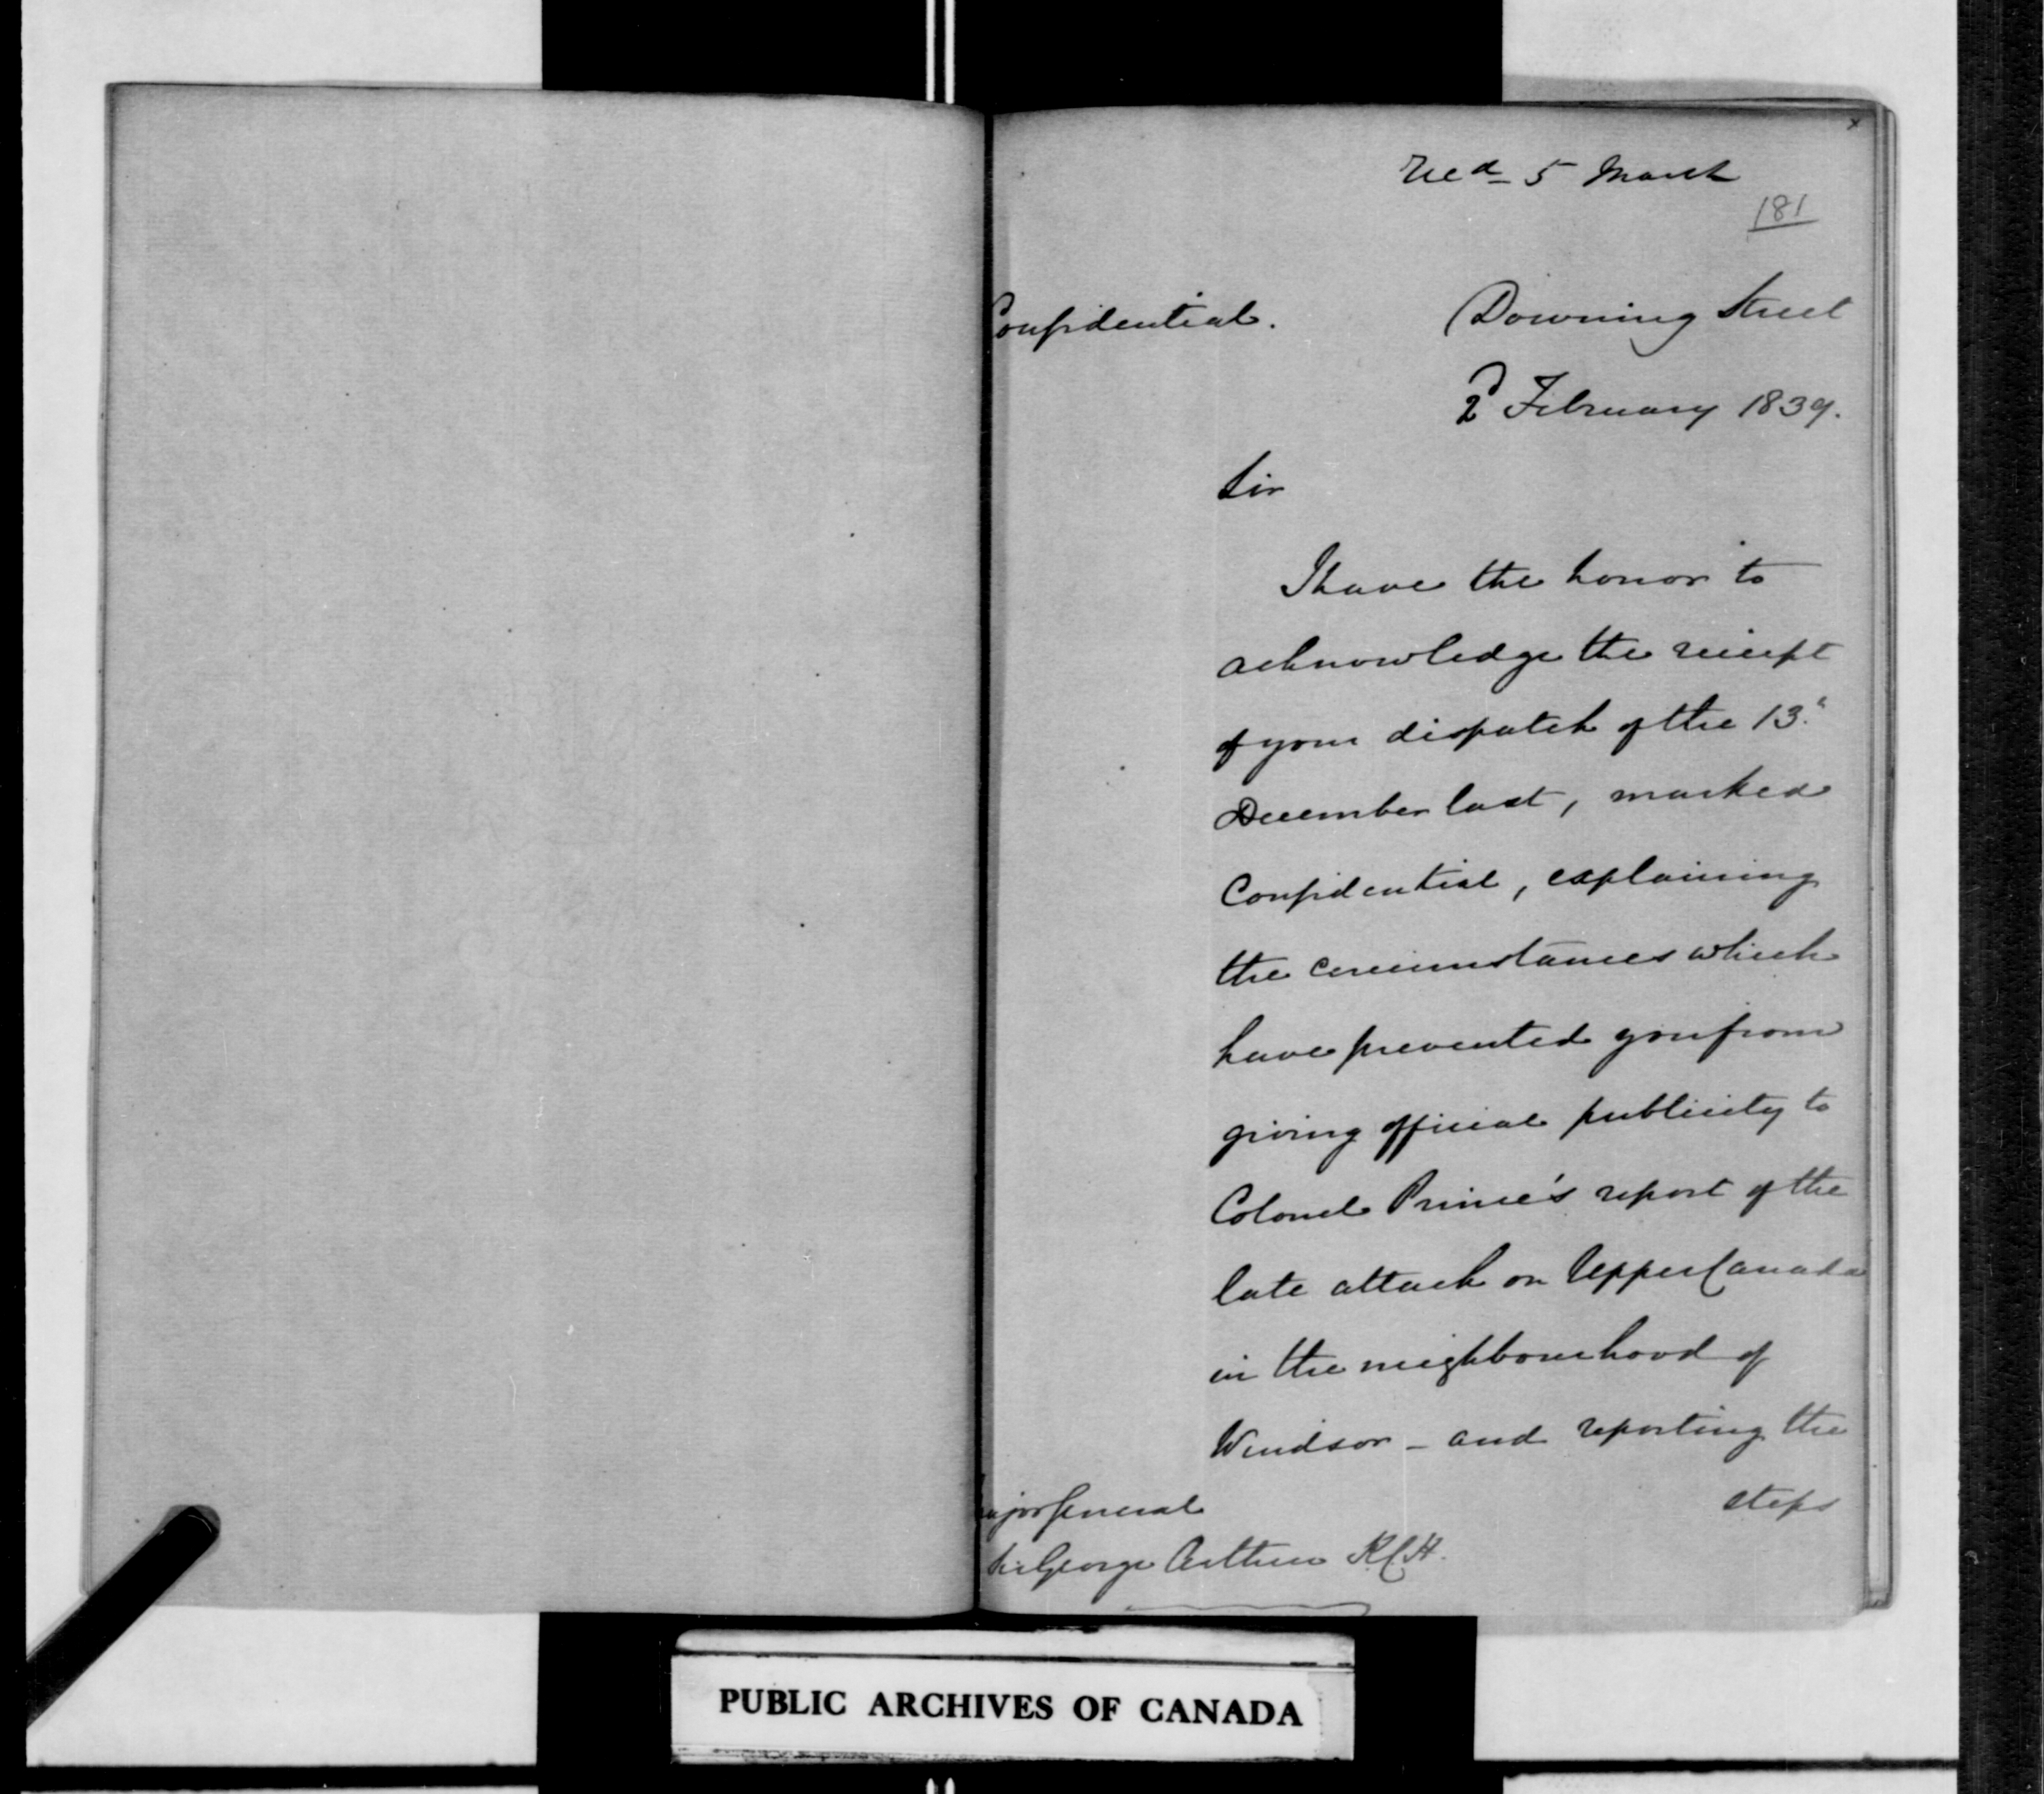 Recd 5 March
181
Confidential.
Downing Street
2 February 1839.
Sir
I have the honor to
acknowledge the receipt
of your dispatch of the 13th
December last, marked
Confidential, explaining
the circumstances which
have prevented you from
giving official publicity to
Colonel Prince's report of the
late attack on Upper Canada
in the neighbourhood of
Windsor - and reporting the
steps
Major General
Sir George Arthur K.C.H.
PUBLIC ARCHIVES OF CANADA